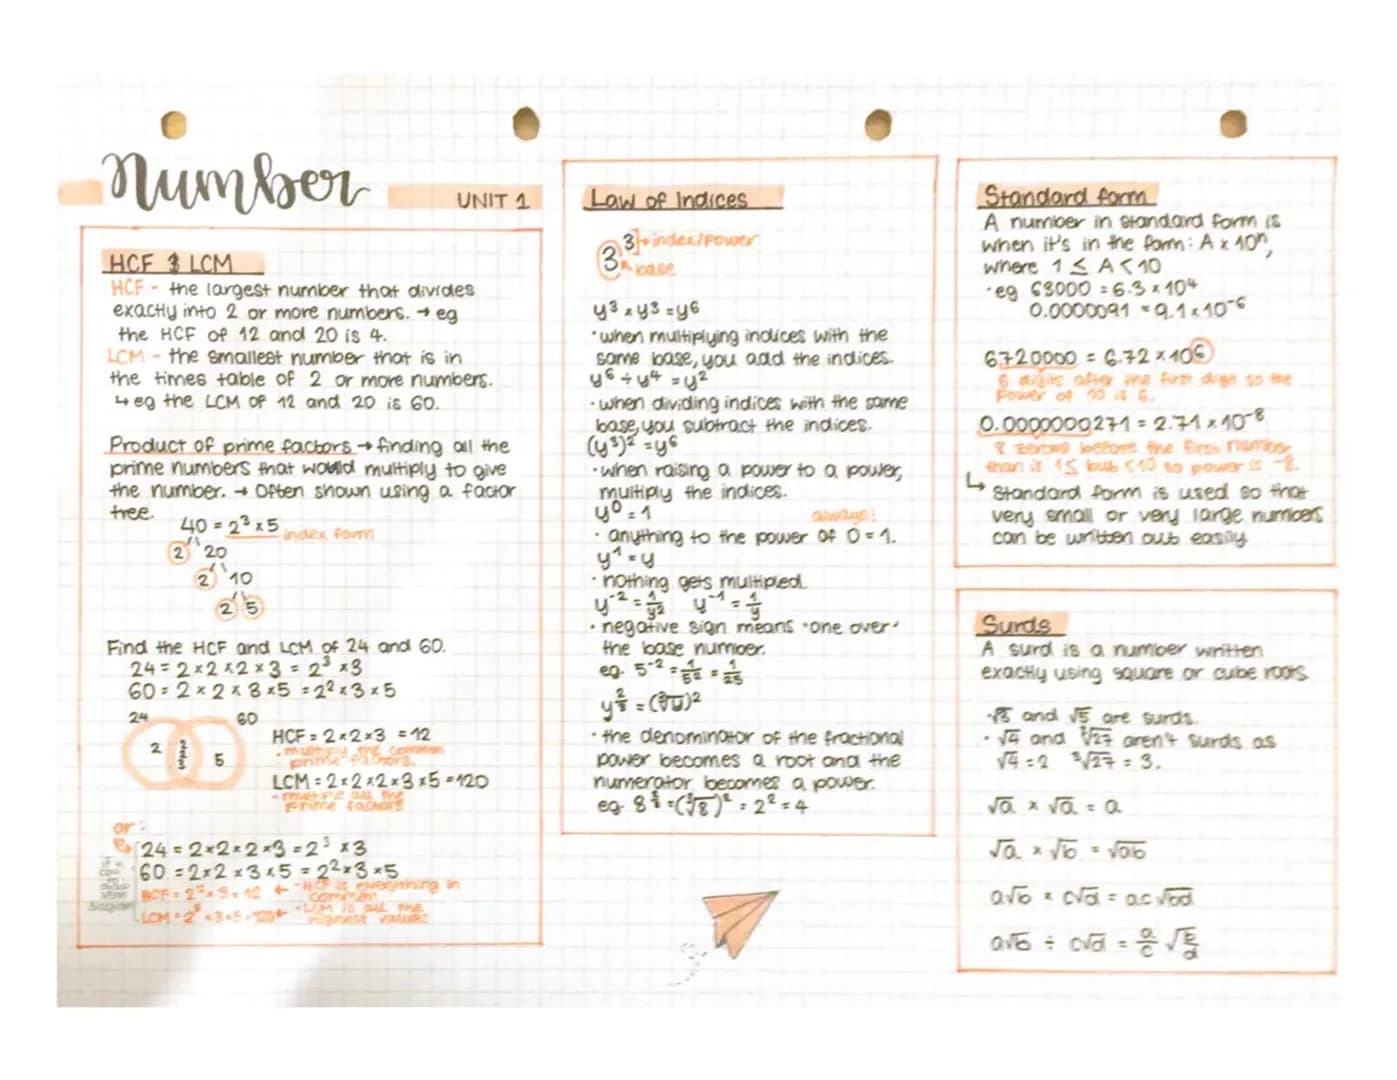 Number
UNIT 1
HCF & LCM
HCF - the largest number that divides
exactly into 2 or more numbers. → eg
the HCF of 12 and 20 is 4.
LCM - the smallest number that is in
the times table of 2 or more numbers.
↳ eg the LCM of 12 and 20 is 60.
Product of prime factors → finding all the
prime numbers that would multiply to give
the number. → Often shown using a factor
tree.
40 = 2³ × 5 index form
2 20
2 10
2 5
Find the HCF and LCM of 24 and 60.
24 = 2 × 2 × 2 × 3 = 2³ × 3
60 = 2 × 2 × 3 × 5 = 2² × 3 × 5
24 60
2 2 2 3 5
HCF = 2 × 2 × 3 = 12
- multiply the common
prime factors.
LCM = 2 × 2 × 2 × 3 × 5 = 120
- multiply all the
prime factors
or:
24 = 2 × 2 × 2 × 3 = 2³ × 3
60 = 2 × 2 × 3 × 5 = 2² × 3 × 5
HCF = 2² × 3 = 12 ← - HCF is everything in
common
LCM = 2³ × 3 × 5 = 120 ← - LCM is all the
highest values
Law of Indices
3³ → index/power
base
y³ × y³ = y⁶
· when multiplying indices with the
same base, you add the indices.
y⁶ ÷ y⁴ = y²
· when dividing indices with the same
base, you subtract the indices.
(y³)² = y⁶
· when raising a power to a power,
multiply the indices.
y⁰ = 1 always!
· anything to the power of 0 = 1.
y¹ = y
· nothing gets multipled.
y⁻² = 1/y² y⁻¹ = 1/y
· negative sign means "one over"
the base number.
eg. 5⁻² = 1/5² = 1/25
y^(2/3) = (∛y)²
· the denominator of the fractional
power becomes a root and the
numerator becomes a power.
eg. 8^(2/3) = (∛8)² = 2² = 4
Standard form
A number in standard form is
when it's in the form: A × 10ⁿ,
where 1 ≤ A < 10
· eg 63000 = 6.3 × 10⁴
0.0000091 = 9.1 × 10⁻⁶
6720000 = 6.72 × 10⁶
6 digits after the first digit so the
power of 10 is 6.
0.0000000271 = 2.71 × 10⁻⁸
8 zeros before the first number
than is 1≤ but <10 so power is -8.
↳ Standard form is used so that
very small or very large numbers
can be written out easily
Surds
A surd is a number written
exactly using square or cube roots.
· √3 and √5 are surds.
· √4 and ∛27 aren't surds as
√4 = 2 ∛27 = 3.
√a × √a = a
√a × √b = √ab
a√b × c√d = ac√bd
a√b ÷ c√d = a/c √b/d